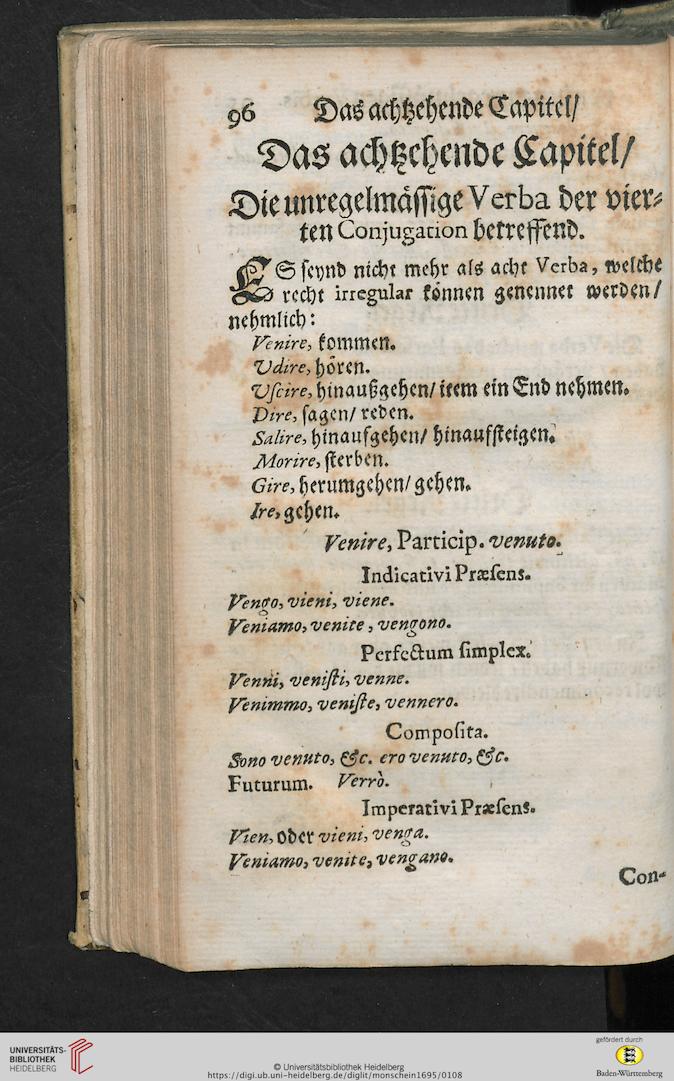 96 Das achtzehende Capitel/
Das achtzehende Capitel/
Die unregelmässige Verba der vier-
ten Conjugation betreffend.
ES seynd nicht mehr als acht Verba, welche
recht irregular können genennet werden/
nehmlich:
Venire, kommen.
Udire, hören.
Uſcire, hinaußgehen/ item ein End nehmen.
Dire, sagen/ reden.
Salire, hinaufgehen/ hinaufsteigen.
Morire, sterben.
Gire, herumgehen/ gehen.
Ire, gehen.
Venire, Particip. venuto.
Indicativi Præſens.
Vengo, vieni, viene.
Veniamo, venite, vengono.
Perfectum ſimplex.
Venni, veniſti, venne.
Venimmo, veniſte, vennero.
Compoſita.
Sono venuto, &c. ero venuto, &c.
Futurum. Verrò.
Imperativi Præſens.
Vien, oder vieni, venga.
Veniamo, venite, vengano.
Con-
UNIVERSITÄTS-
BIBLIOTHEK
HEIDELBERG
© Universitätsbibliothek Heidelberg
https://digi.ub.uni-heidelberg.de/diglit/monschein1695/0108
gefördert durch
Baden-Württemberg